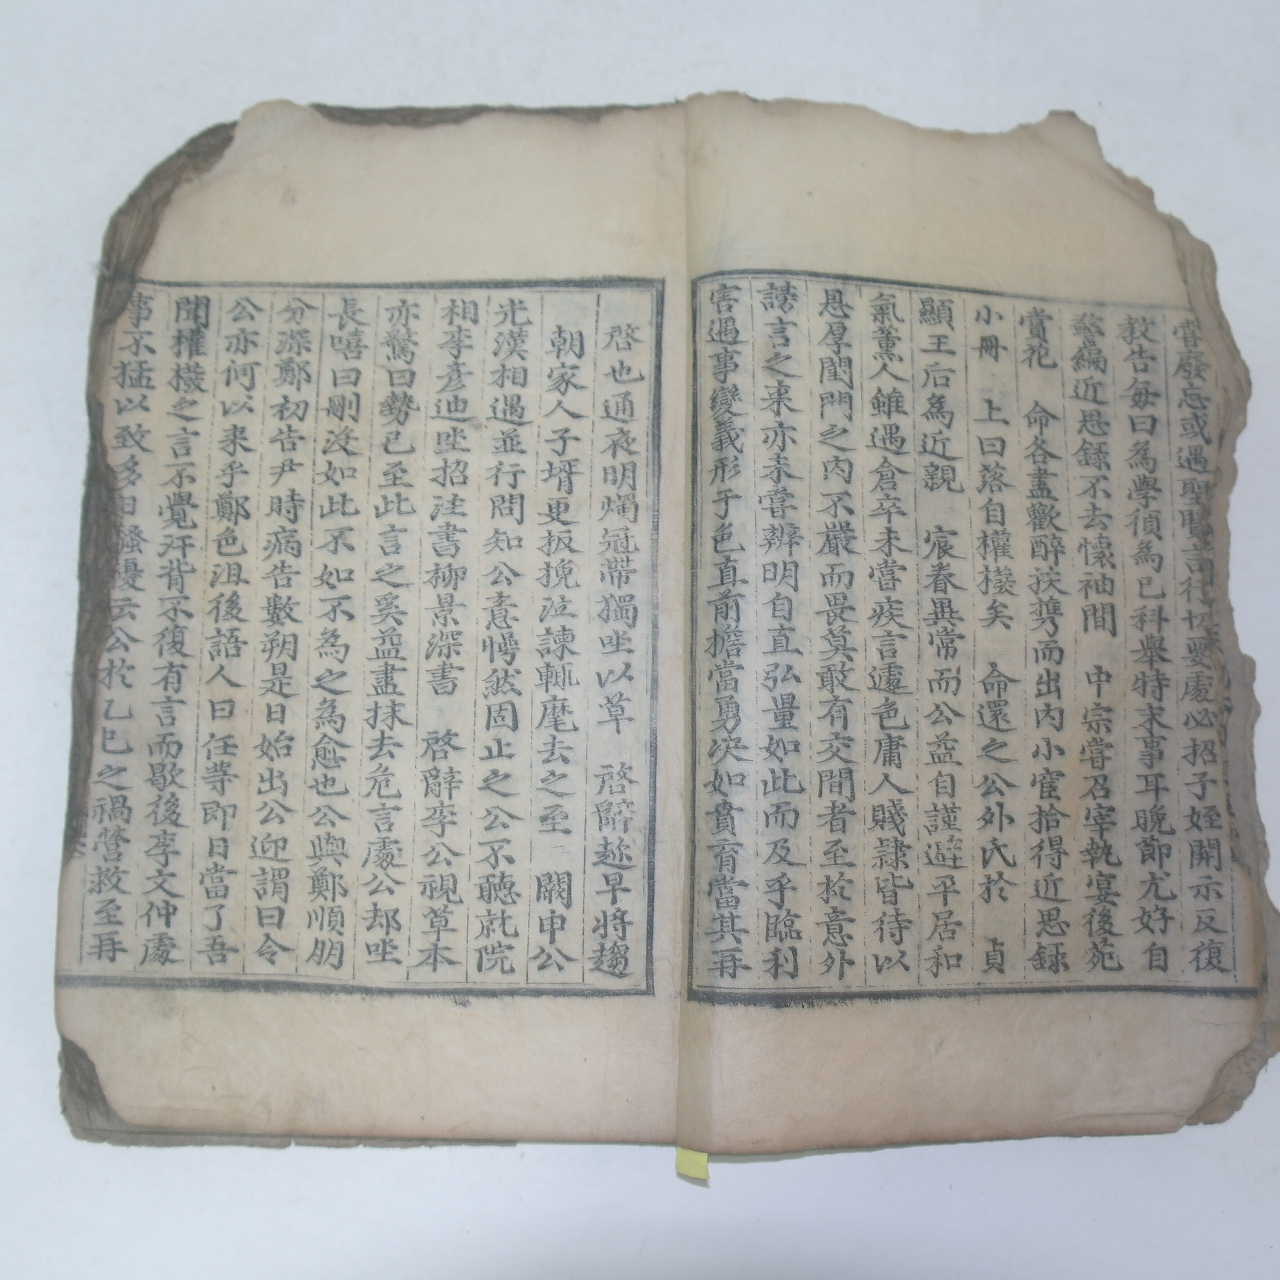 嘗廢忘或遇聖賢言行切要處必招子姪開示反復
敎告每曰爲學須爲已科擧特末事耳晩節尤好自
警編近思錄不去懷袖間 中宗嘗召宰執宴後苑
賞花 命各盡歡醉扶携而出內小宦拾得近思錄
小冊 上曰落自權橃矣 命還之公外氏於 貞
顯王后爲近親 宸眷異常而公益自謹避平居和
氣薰人雖遇倉卒未嘗疾言遽色庸人賤隷皆待以
恩厚閨門之內不嚴而畏莫敢有交間者至於意外
謗言之來亦未嘗辨明自直弘量如此而及乎臨利
害遇事變義形于色直前擔當勇決如賁育當其再
啓也通夜明燭冠帶獨坐以草 啓辭趂早將趨
朝家人子壻更扳挽泣諫輒麾去之至 闕申公
光漢相遇並行問知公意愕然固止之公不聽就院
相李彦迪坐招注書柳景深書 啓辭李公視草本
亦驚曰勢已至此言之奚益盡抹去危言處公却坐
長嘻曰刪沒如此不如不爲之爲愈也公與鄭順朋
分深鄭初告尹時病告數朔是日始出公迎謂曰令
公亦何以來乎鄭色沮後語人曰任等即日當了吾
聞權橃之言不覺汗背不復有言而歇後李文仲處
事不猛以致多日騷擾云公於乙巳之禍營救至再